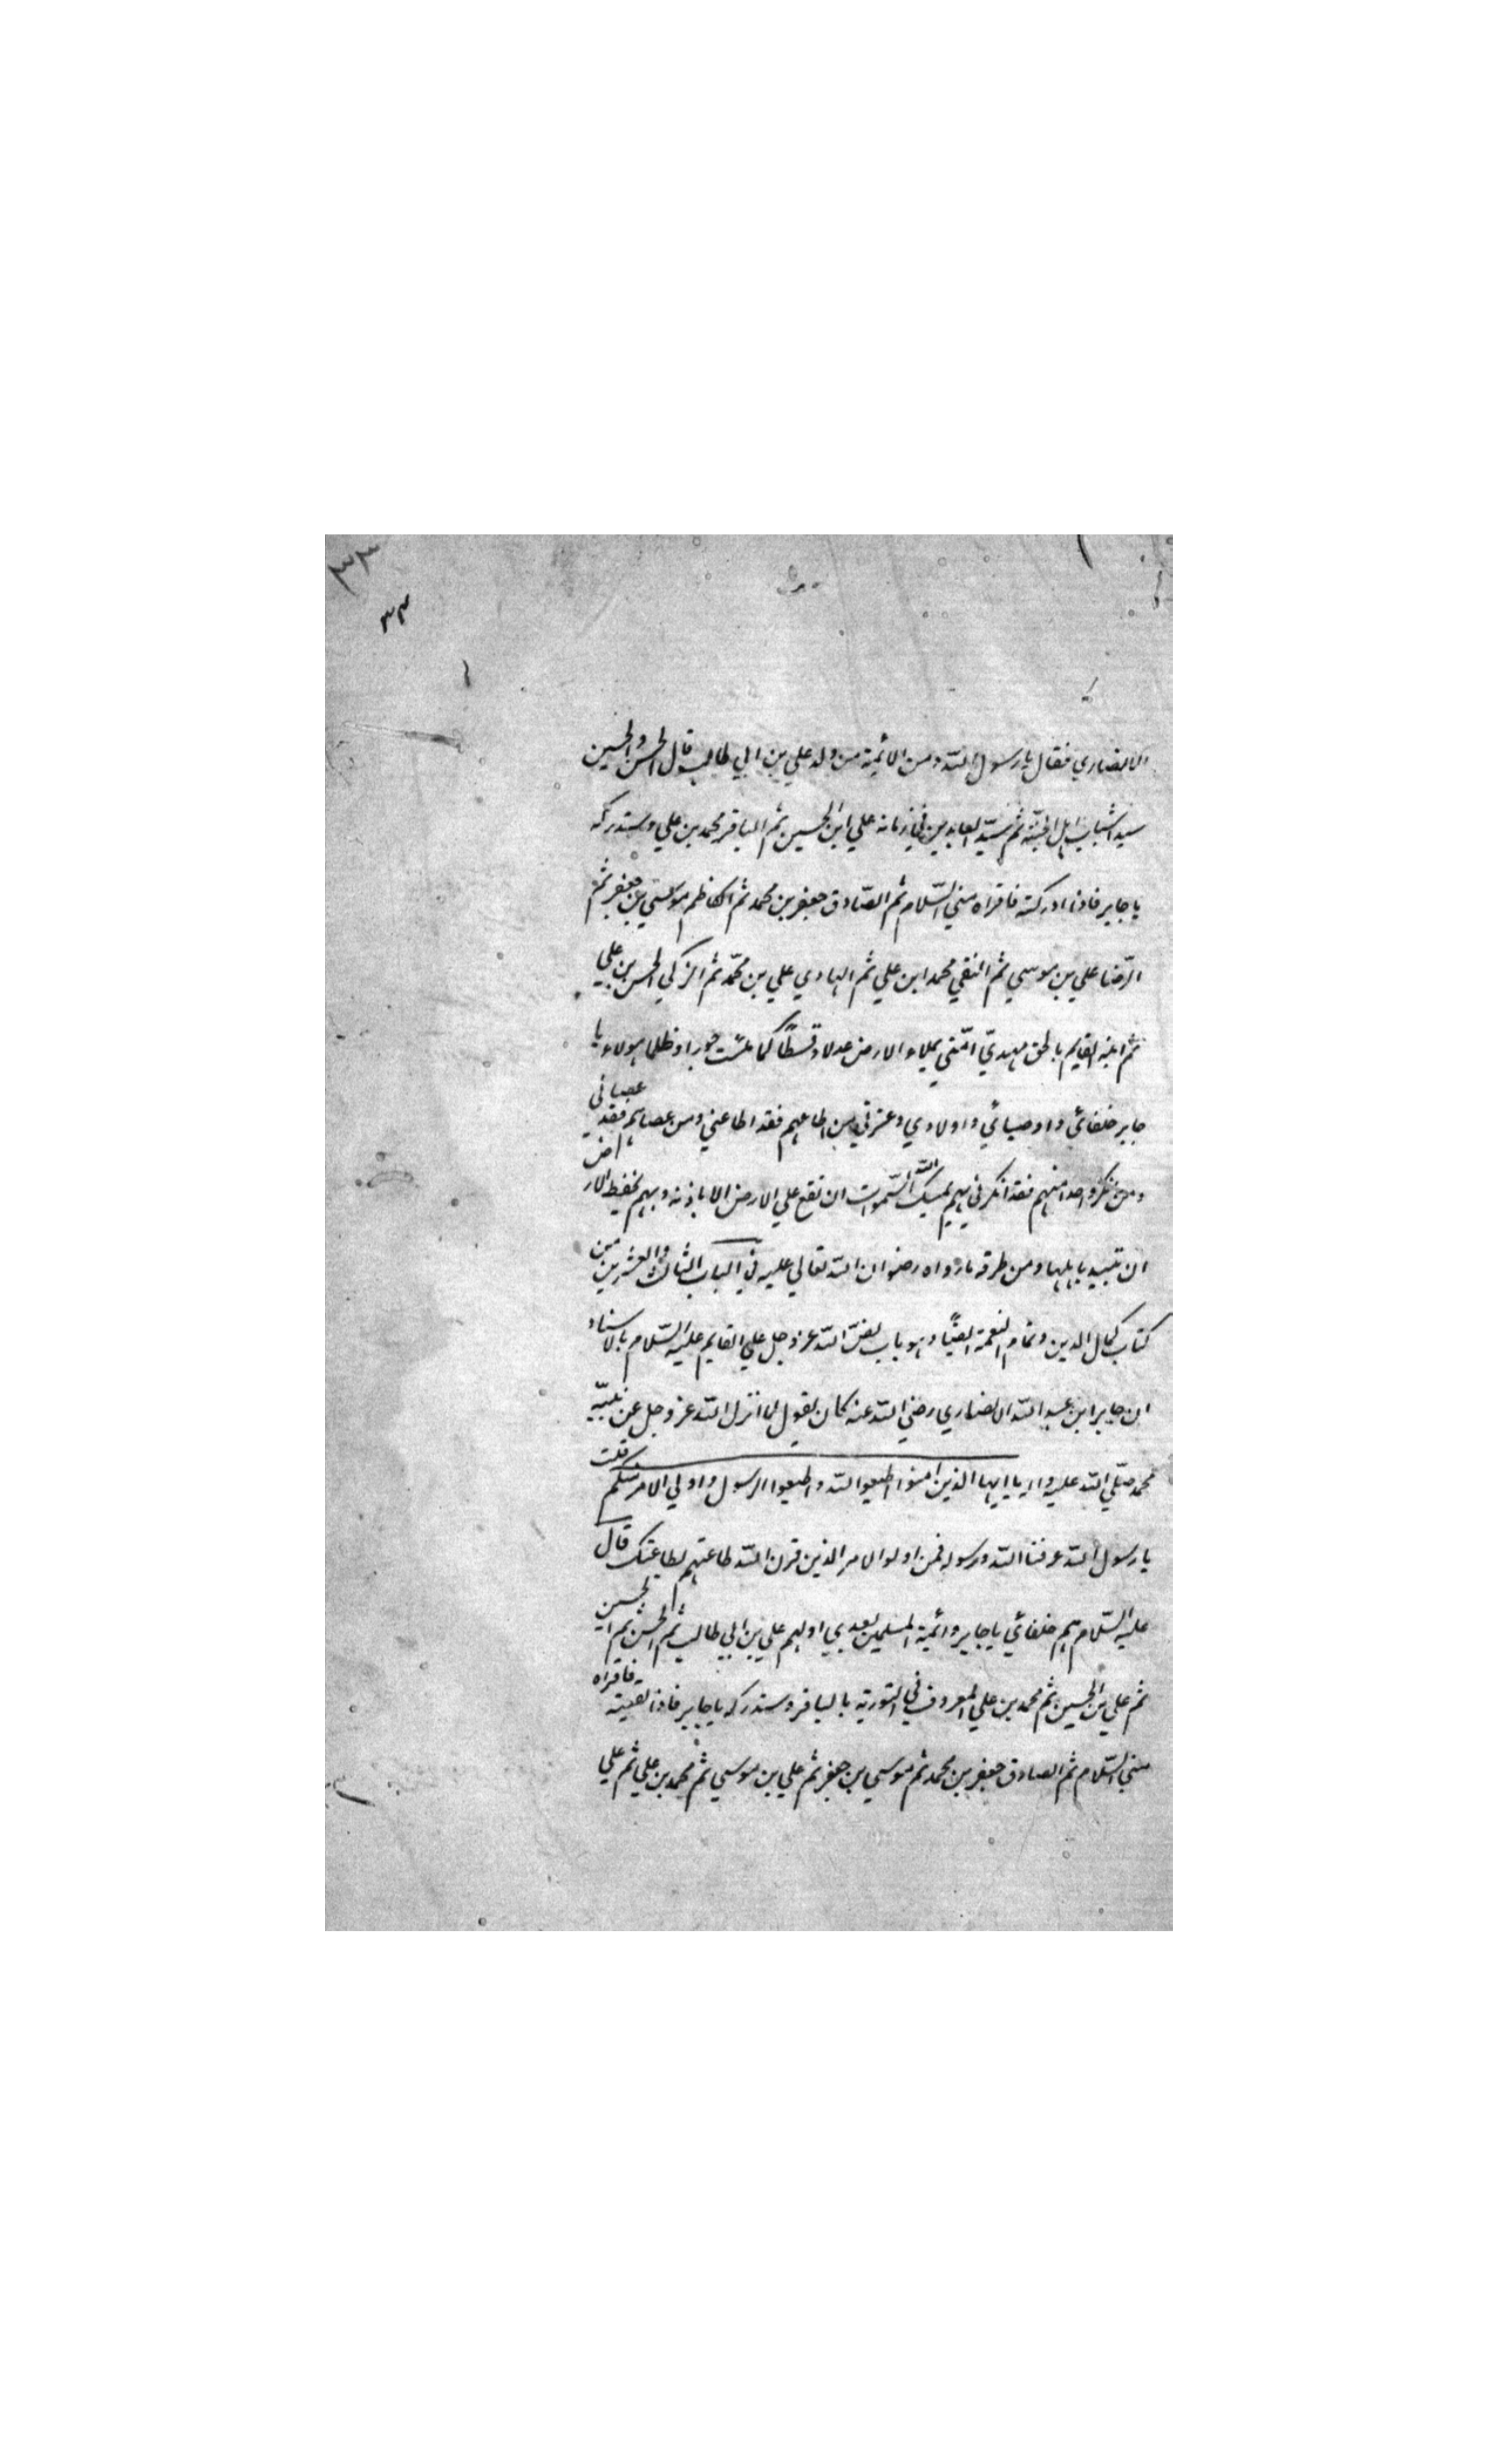 ٣٣
٣٣
الانصاري فقال يا رسول الله و من الائمة من ولد علي بن ابي طالب قال الحسن و الحسين
سيدا شباب اهل الجنة ثم سيّد العابدين في زمانه علي ابن الحسين ثم الباقر محمد بن علي و ستدركه
يا جابر فاذا ادركته فاقراه مني السّلام ثم الصّادق جعفر بن محمد ثم الكاظم موسي بن جعفر ثم
الرّضا علي بن موسي ثم التقي محمد ابن علي ثم الهادي علي بن محمّد ثم الزكي الحسن بن علي
ثم ابنه القايم بالحق مهديّ امّتي يملاء الارض عدلا و قسطًا كما ملئت جورا و ظلما هولاء يا
جابر خلفائي و اوصيائي و اولادي و عترتي من اطاعهم فقد اطاعني و من عصاهم فقد عصاني
و من انكر واحدا منهم فقد انكرني بهم يمسك الله السّموات ان تقع علي الارض الا باذنه و بهم يحفظ الارض
ان تميد باهلها و من طرقه ما رواه رضوان الله تعالي عليه في الباب الثالث والعشرين من
كتاب كمال الدين و تمام النعمة ايضًا و هو باب نصّ الله عز و جل علي القايم عليه السّلام بالاسناد
ان جابر ابن عبد الله الانصاري رضي الله عنه كان يقول لما انزل الله عز و جل عن نبيّه
محمد صلّي الله عليه و اله يا ايها الذين امنوا اطيعوا الله و اطيعوا الرسول و اولي الامر منكم قلت
يا رسول الله عرفنا الله و رسوله فمن اولو الامر الذين قرن الله طاعتهم بطاعتك قال
عليه السّلام هم خلفائي يا جابر و ائمة المسلمين بعدي اولهم علي بن ابي طالب ثم الحسن ثم الحسين
ثم علي بن الحسين ثم محمد بن علي المعروف في التورية بالباقر و ستدركه يا جابر فاذا لقيته فاقراه
مني السّلام ثم الصادق جعفر بن محمد ثم موسي بن جعفر ثم علي بن موسي ثم محمد بن علي ثم علي